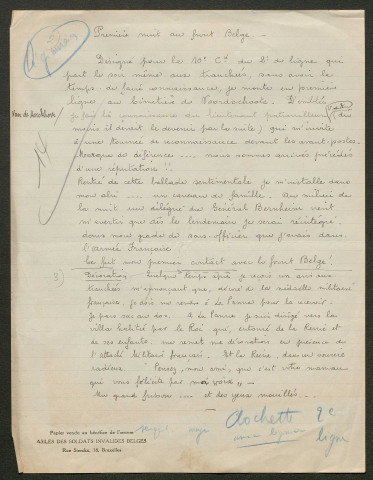 Première nuit au front Belge. —
Désigné pour la 10e Cie du 2e de ligne qui
part le soir même aux tranchées, sans avoir le
temps de faire connaissance, je monte en première
ligne au Cimetière de Noordschoote. D'emblée
je fais la connaissance du lieutenant patrouilleur
(du moins il devait le devenir par la suite) qui m'invite
à une tournée de reconnaissance devant les avant-postes.
Marque de déférence .... nous sommes arrivés précédés
d'une réputation !!
Rentré de cette ballade sentimentale je m'installe dans
mon abri .... au milieu
de la nuit un délégué du Général Bernheim vient
m'avertir que dès le lendemain je serai réintégré
dans mon grade de sous-officier que j'avais dans
l'armée Française
Ce fut mon premier contact avec le front Belge!
3) Décoration Quelque temps après je reçois un avis aux
tranchées m'annonçant que, décoré de la médaille militaire
française, je dois me rendre à La Panne pour la recevoir.
Je pars sac au dos. A La Panne je suis dirigé vers la
villa habitée par le Roi qui, entouré de la Reine et
de ses enfants, me remet ma décoration en présence de
l'attaché Militaire français. Et la Reine, dans un sourire
radieux " Pensez, mon ami, que c'est votre maman
qui vous félicite par ma voix "
Un grand frisson .... et des yeux mouillés...
14
Clochette 2e
ligne
Papier vendu au bénéfice de l'œuvre
AISLES DES SOLDATS INVALIDES BELGES
Bruxelles